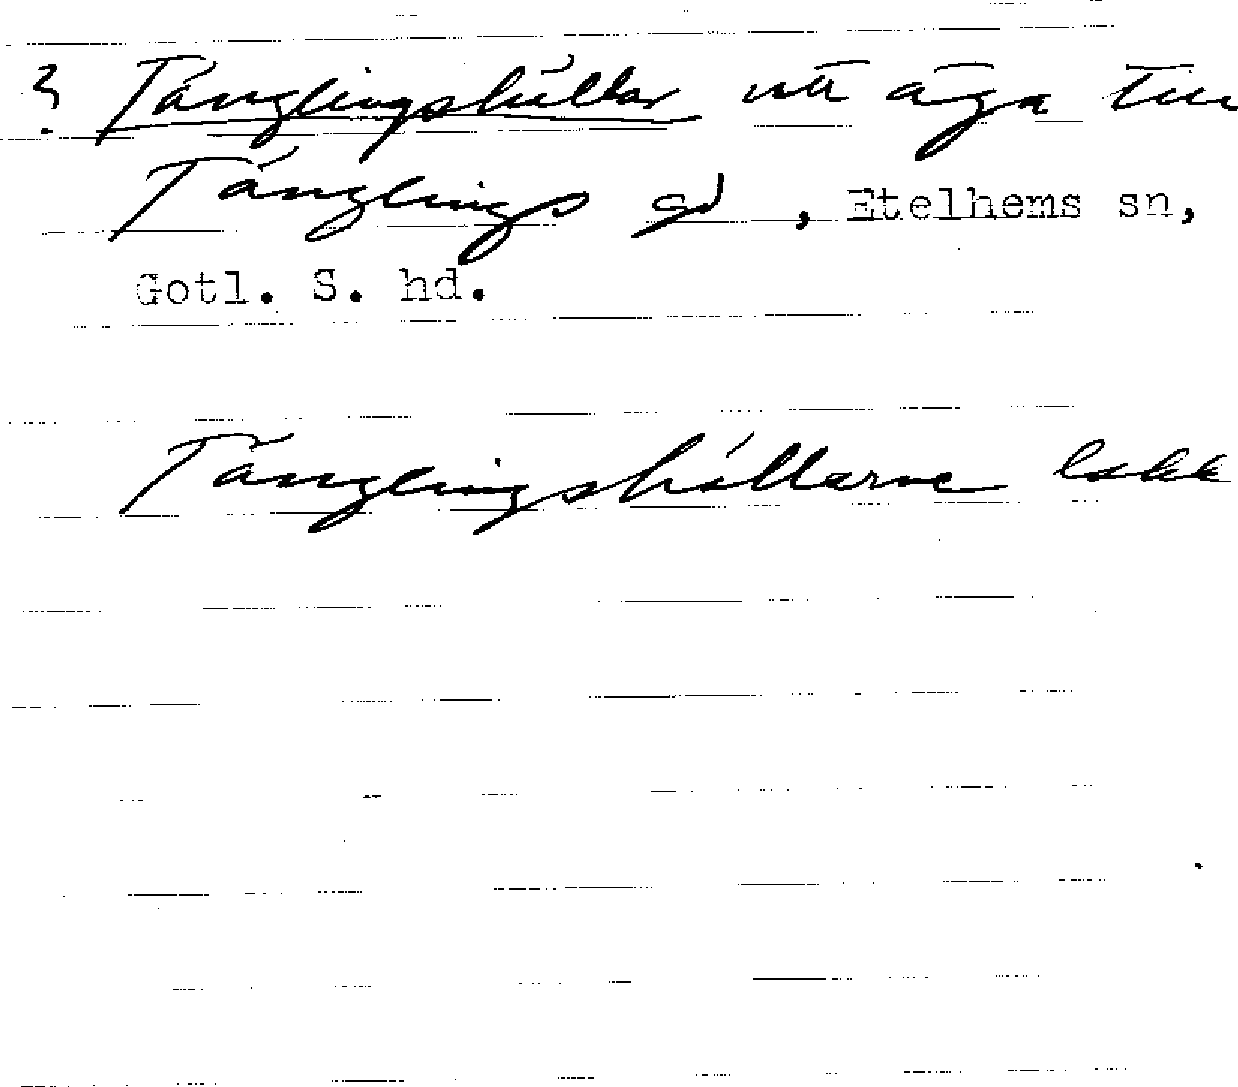 ? Tänglingshällar nu äga till
Tänglings gd, Etelhems sn,
Gotl. S. hd.
Tänglingshällarne